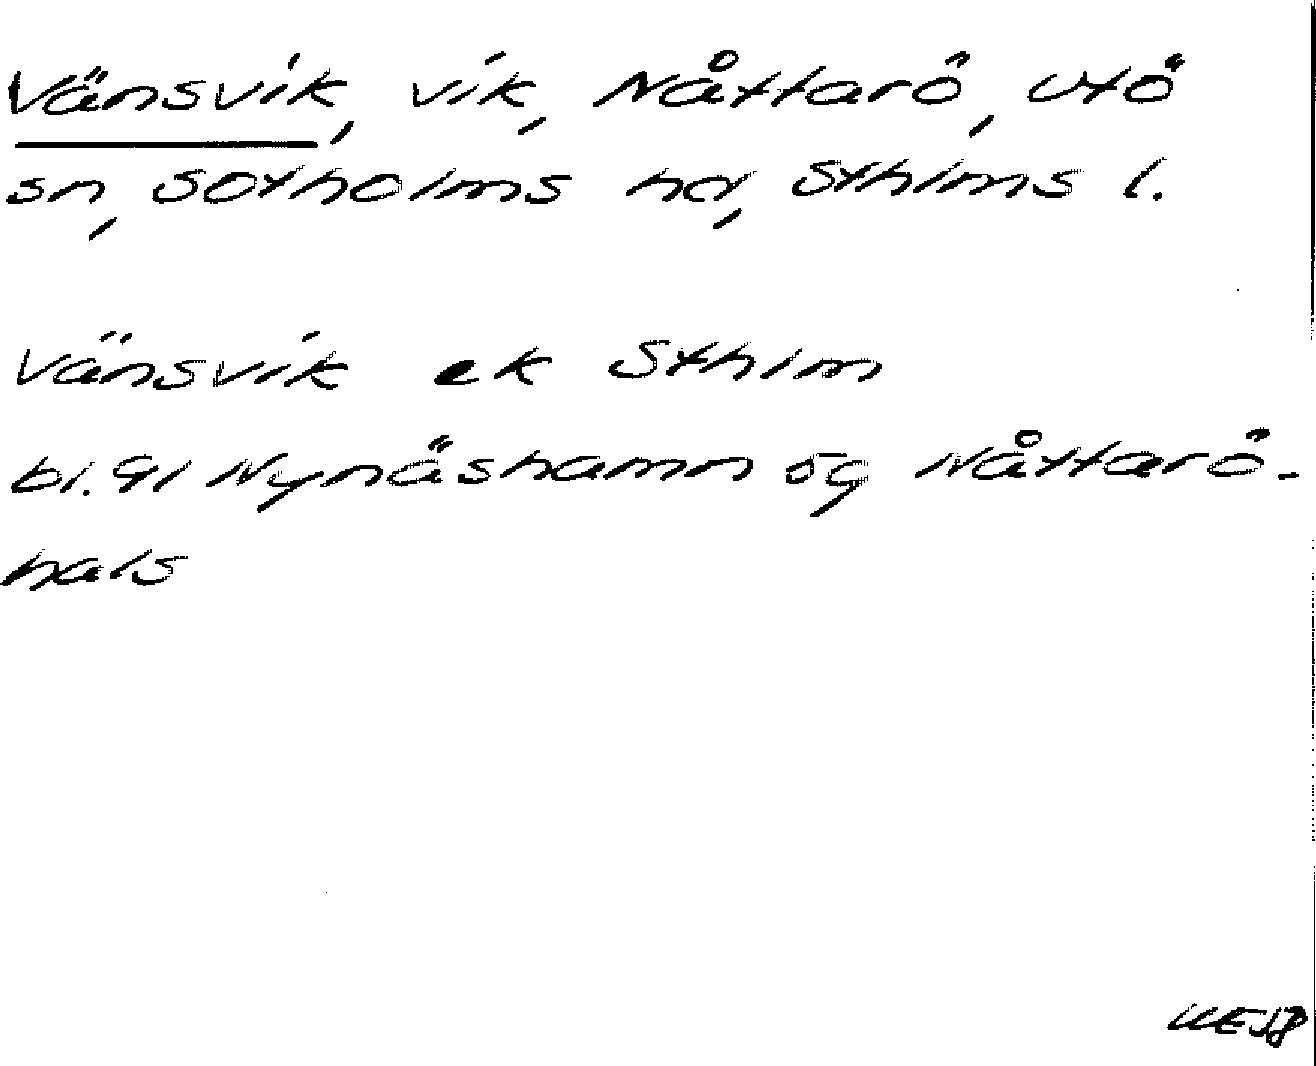 Vänsvik, vik, Nåttarö, Utö
sn, Sotholms hd, Sthlms l.
Vänsvik ek Sthlm
bl. 91 Nynäshamn ög Nåttarö-
hals